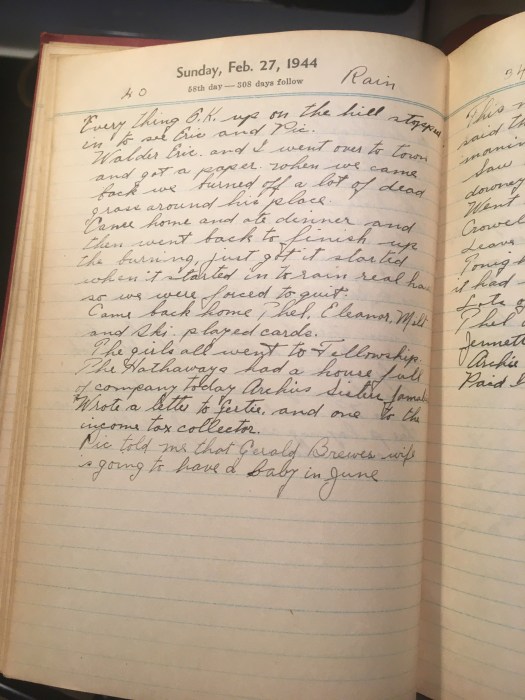 Sunday, Feb. 27, 1944
58th day—308 days follow
40 Rain
Every thing O.K. up on the hill stopped
in to see Eric and Pic.
Walder Eric. and I went over to town
and got a paper. when we came
back we burned off a lot of dead
grass around his place.
Came home and ate dinner and
then went back to finish up
the burning, just got it started
when it started in to rain real
so we were forced to quit.
Came back home, Phel, Eleanor, Milt
and Ski played cards.
The girls all went to Fellowship.
The Hathaways had a house full
of company today Archies Sister
Wrote a letter to Gertie, and one to the
income tax collector.
Pic told me that Gerald Brewer wife
is going to have a baby in June
34
This
said th
mornin
Saw
downey
Went
Crowel
Leave
Tonigh
it had
Lots o
Phel
Jennett
Archie
Paid